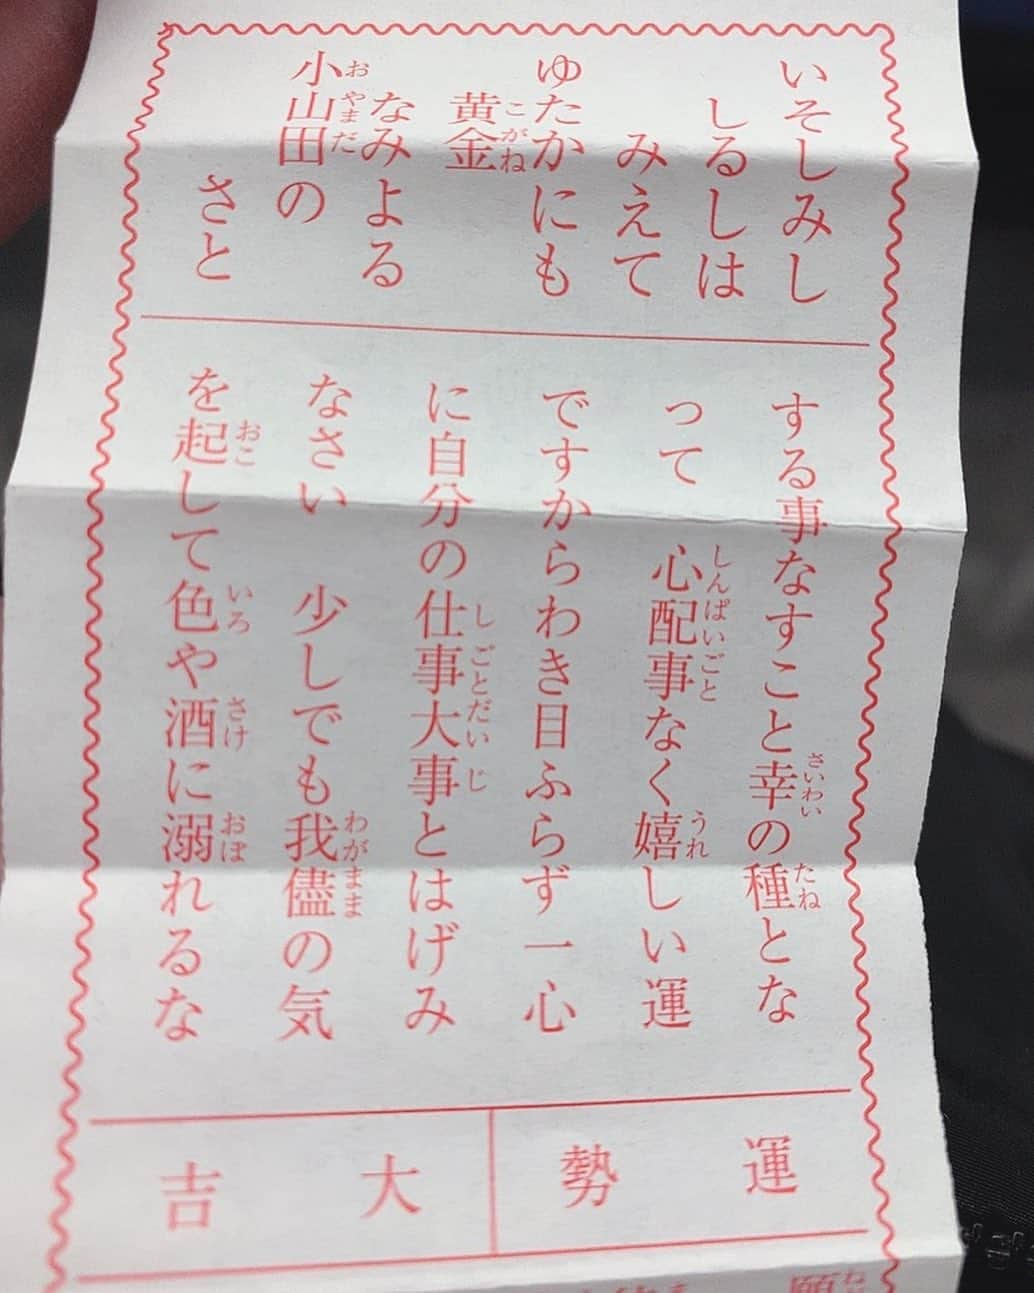 いそしみし
しるしは
みえて
ゆたかにも
黄金
なみよる
小山田の
さと
する事なすこと幸の種とな
って 心配事なく嬉しい運
ですからわき目ふらず一心
に自分の仕事大事とはげみ
なさい 少しでも我儘の気
を起して色や酒に溺れるな
運勢
大吉
願